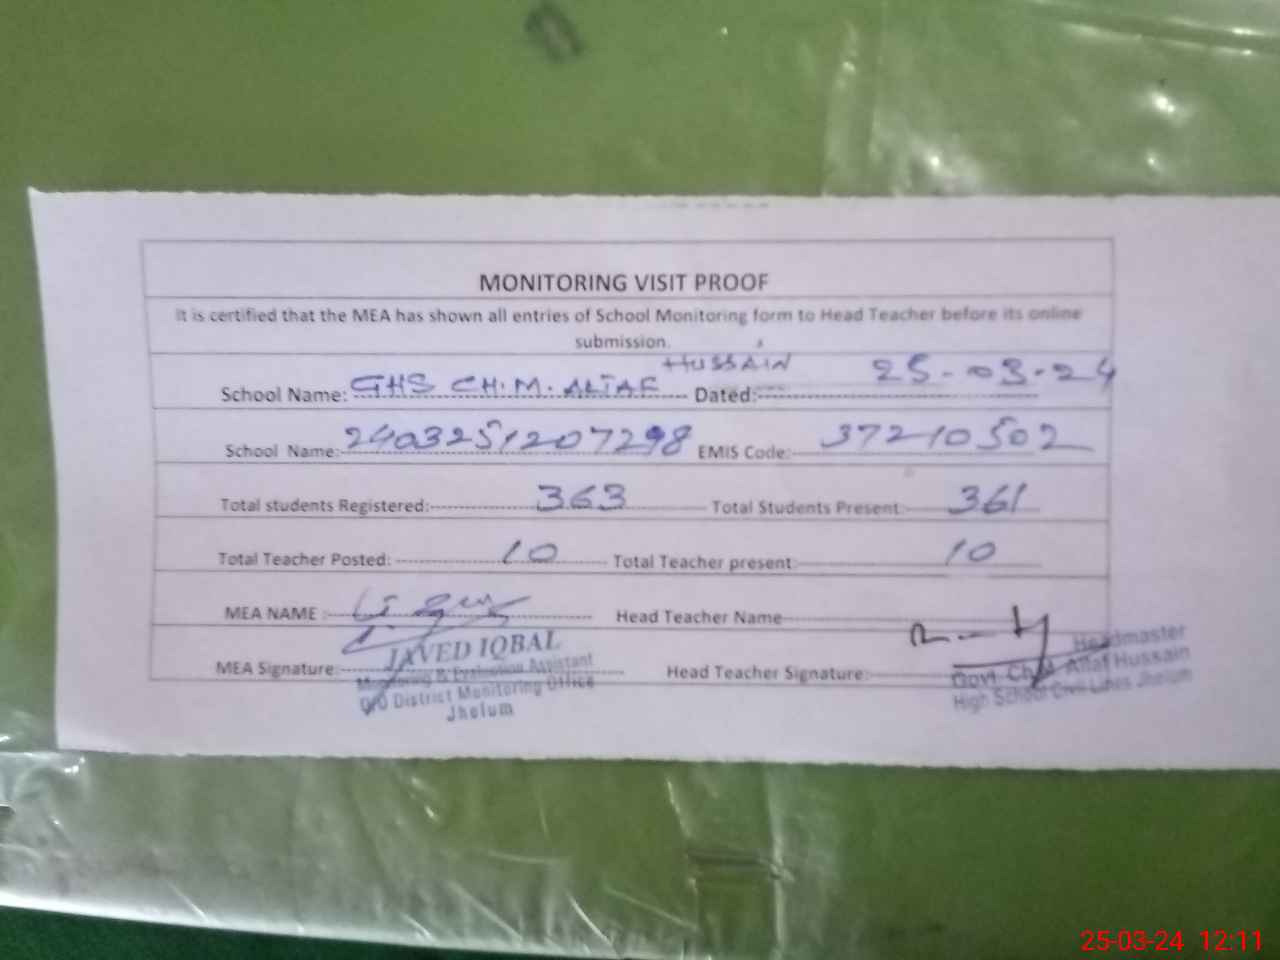 MONITORING VISIT PROOF
It is certified that the MEA has shown all entries of School Monitoring form to Head Teacher before its online
submission.
School Name: GHS CH. M. ALTAF HUSSAIN Dated: 25-03-24
School Name: 2403251207298 EMIS Code: 37210502
Total students Registered: 363 Total Students Present: 361
Total Teacher Posted: 10 Total Teacher present: 10
MEA NAME : Head Teacher Name
MEA Signature: Head Teacher Signature:
JAVED IQBAL
Monitoring & Evaluation Assistant
O/O District Monitoring Office
Jhelum
Headmaster
Govt. Ch. M. Altaf Hussain
High School Civil Lines Jhelum
25-03-24 12:11